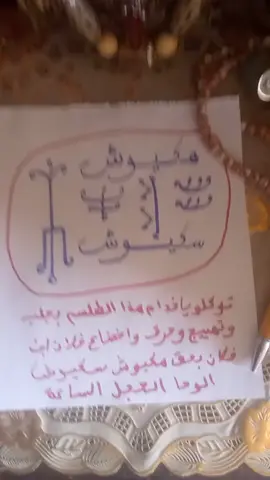 مكيوش
سكيوش
توكلو يا خدام هذا الطلسم بجلب
وتهييج وحرق واخضاع فلانة بنت
فلان بحق مكيوش سكيوش
الوحا العجل الساعة